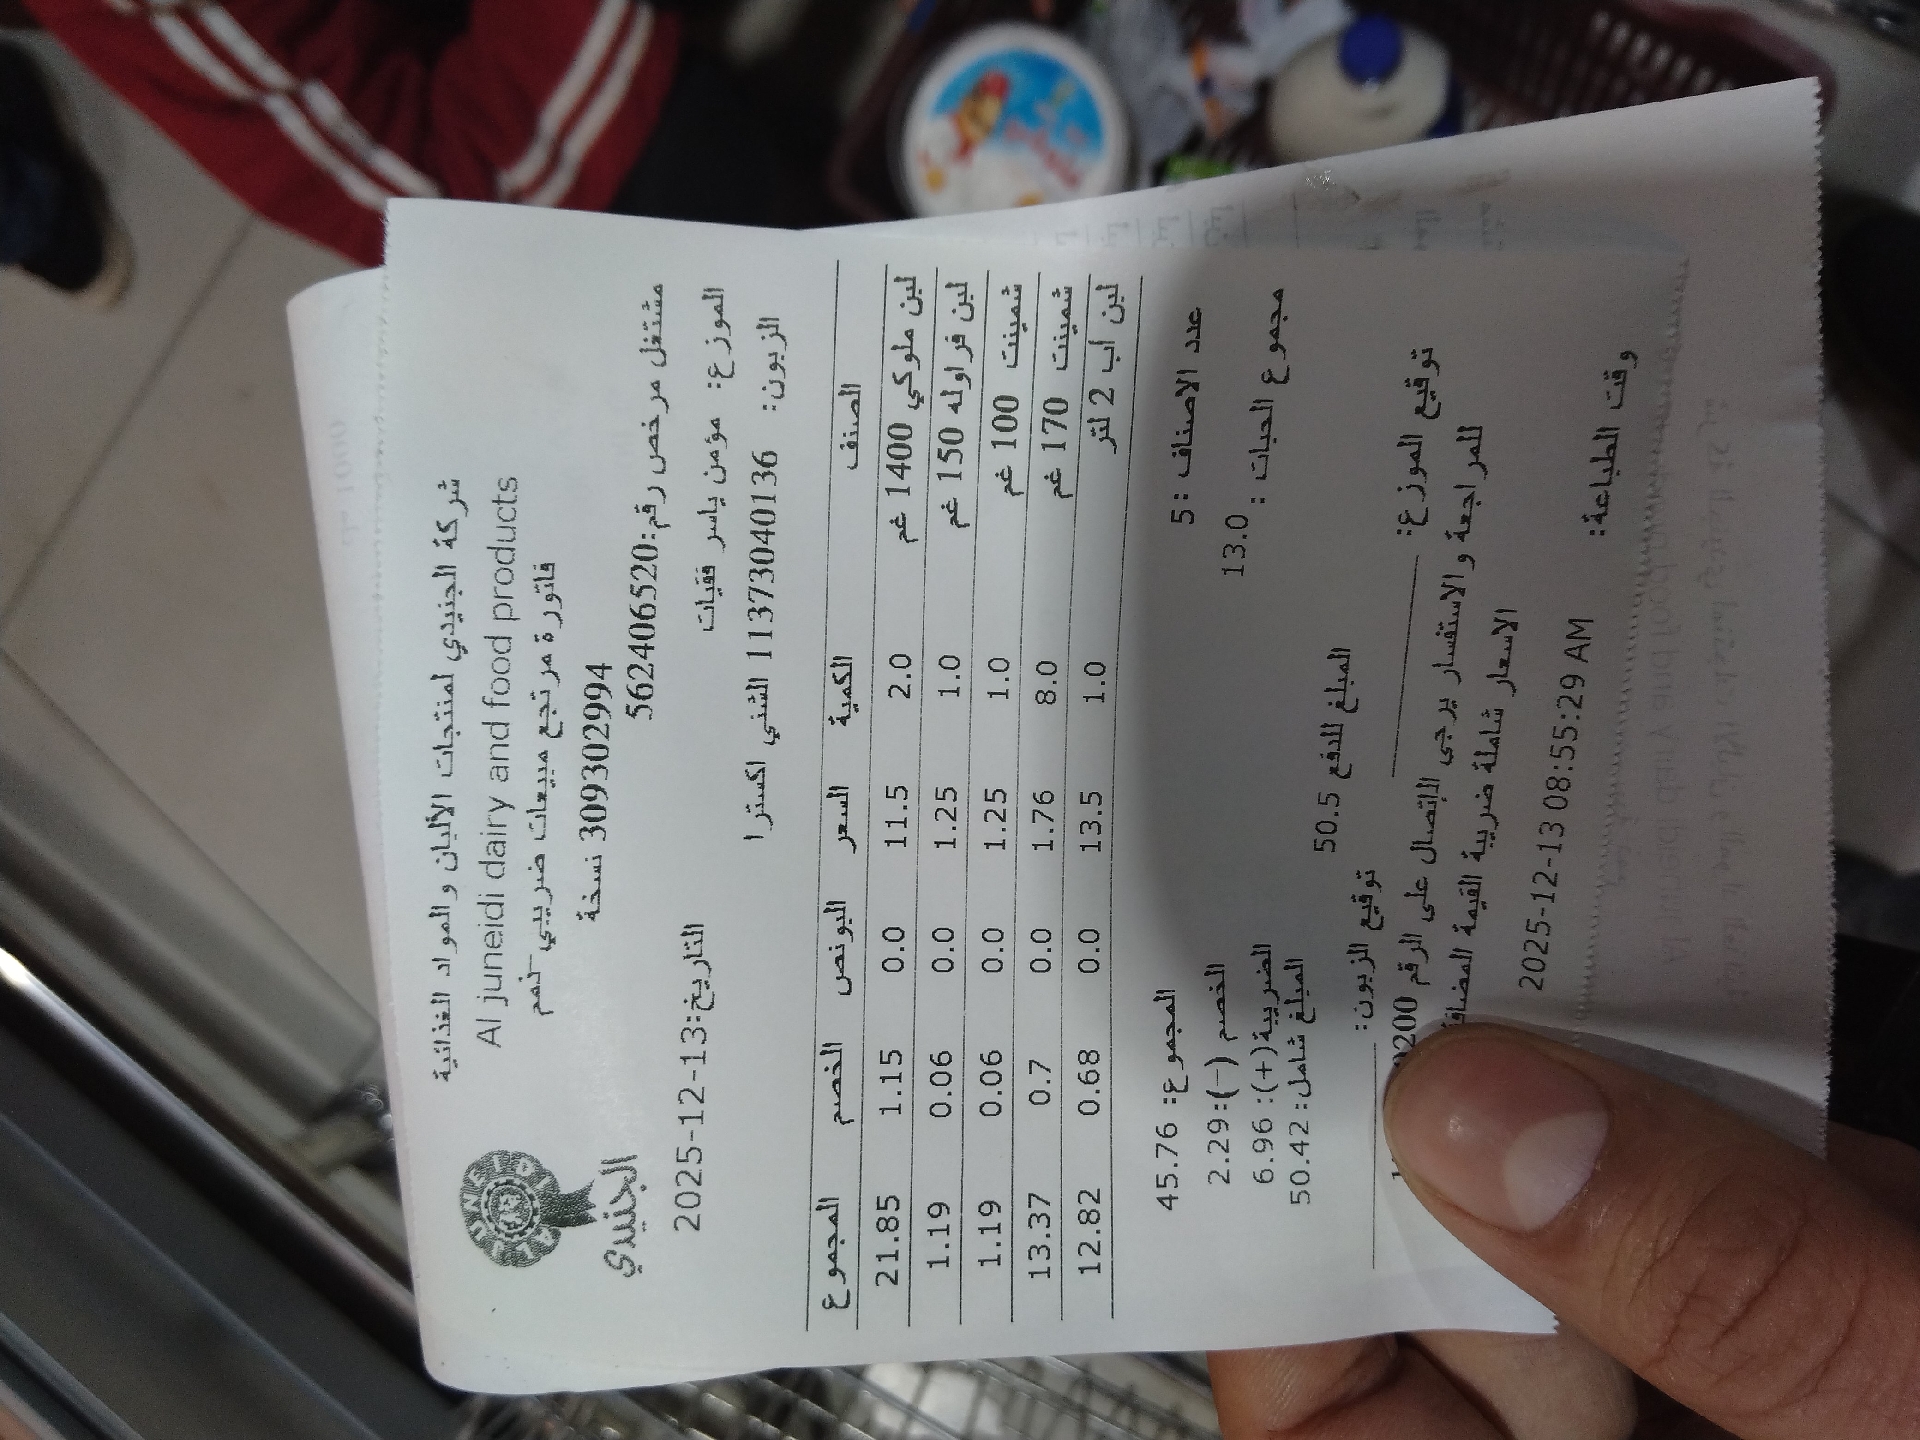 شركة الجنيدي لمنتجات الألبان والمواد الغذائية
Al juneidi dairy and food products
فاتورة مرتجع مبيعات ضريبي-نعم
309302994 نسخة
AL JUNEIDI
الجنيدي
مشتغل مرخص رقم:562406520
التاريخ:2025-12-13
الموزع: مؤمن ياسر فقيات
الزبون: 11373040136 الشني اكسترا
الصنف الكمية السعر البونص الخصم المجموع
لبن ملوكي 1400 غم 2.0 11.5 0.0 1.15 21.85
لبن فراوله 150 غم 1.0 1.25 0.0 0.06 1.19
شمينت 100 غم 1.0 1.25 0.0 0.06 1.19
شمينت 170 غم 8.0 1.76 0.0 0.7 13.37
لبن اب 2 لتر 1.0 13.5 0.0 0.68 12.82
عدد الاصناف :5 المجموع: 45.76
مجموع الحبات : 13.0 الخصم (-): 2.29
الضريبة(+): 6.96
المبلغ شامل: 50.42
المبلغ للدفع 50.5
توقيع الموزع: توقيع الزبون:
للمراجعة والاستفسار يرجى الاتصال على الرقم
الاسعار شاملة ضريبة القيمة المضافة
وقت الطباعة: 2025-12-13 08:55:29 AM